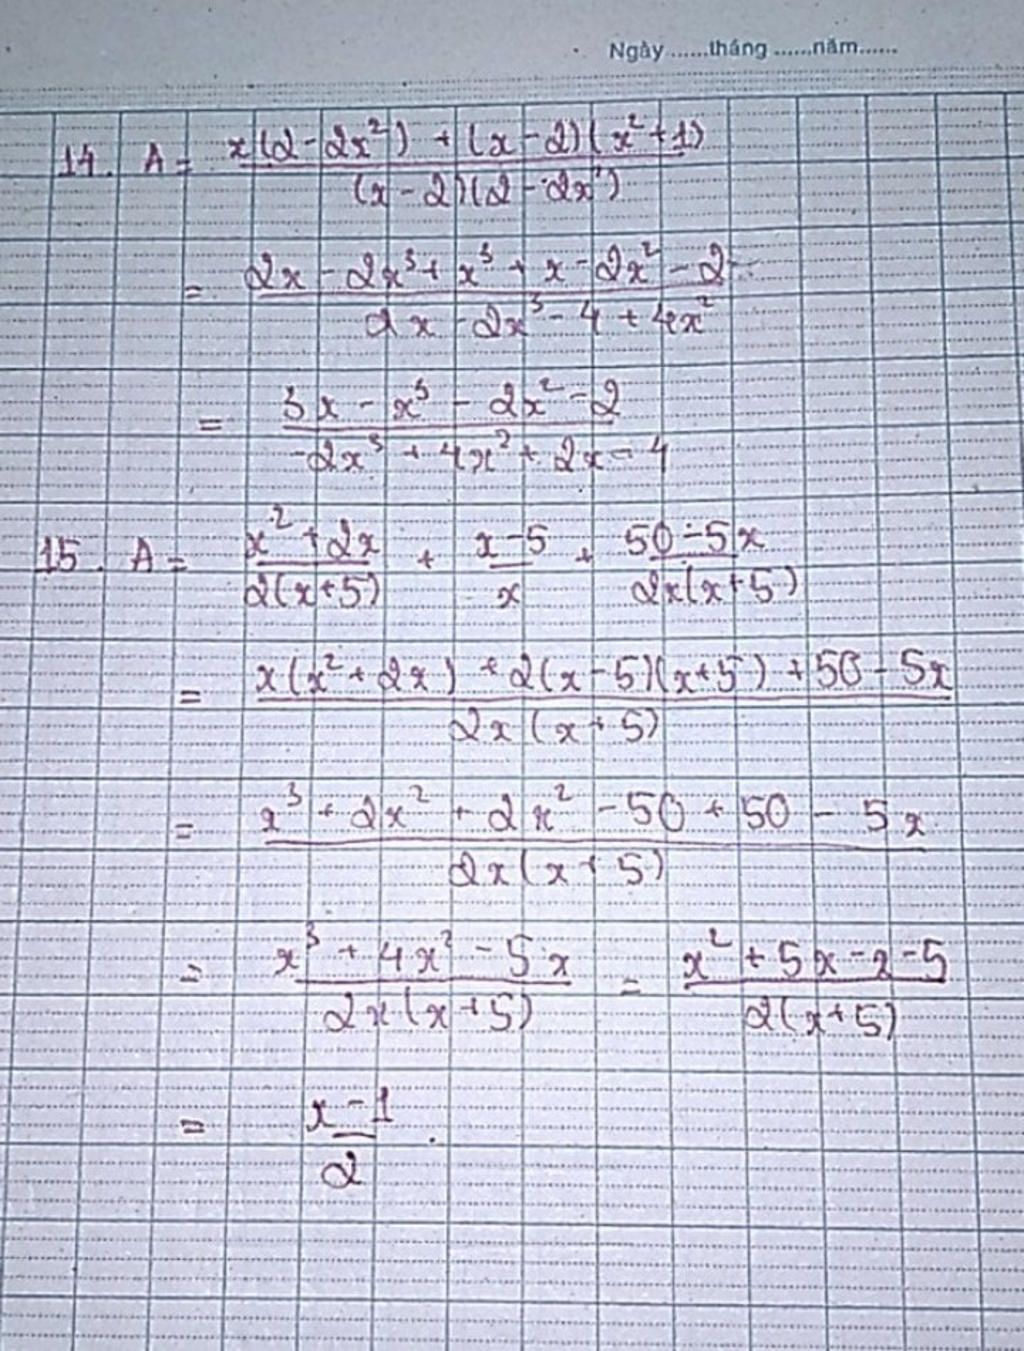 Ngày ......tháng ......năm......
14. A = x(2 - 2x²) + (x - 2)(x² + 1)
(x - 2)(2 - 2x²)
= 2x - 2x³ + x³ + x - 2x² - 2
2x - 2x³ - 4 + 4x²
= 3x - x³ - 2x² - 2
-2x³ + 4x² + 2x - 4
15. A = x² + 2x + x - 5 + 50 - 5x
2(x+5) x 2x(x+5)
= x(x² + 2x) + 2(x - 5)(x+5) + 50 - 5x
2x(x + 5)
= x³ + 2x² + 2x² - 50 + 50 - 5x
2x(x + 5)
= x³ + 4x² - 5x = x² + 5x - x - 5
2x(x + 5) 2(x+5)
= x - 1
2 .